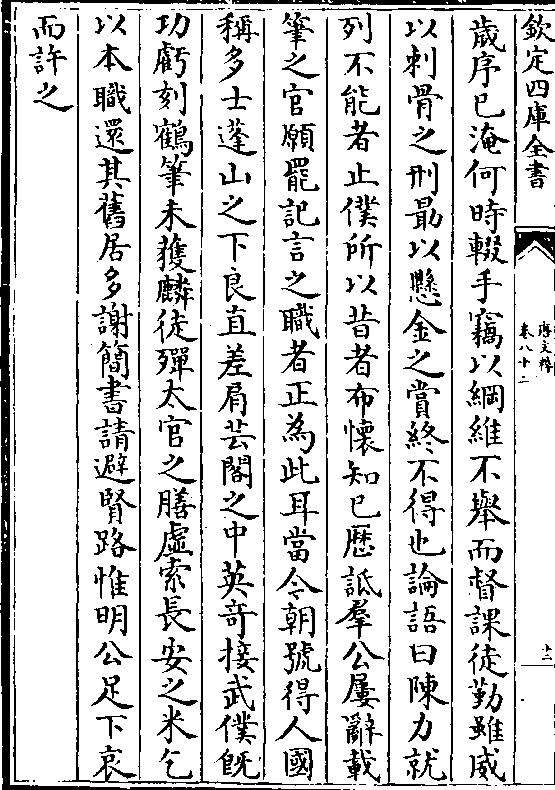 欽定四庫全書
唐文粹
卷八十二
十二
歲序已淹何時輟手竊以綱維不舉而督課徒勤雖威
以刺骨之刑勗以懸金之賞終不得也論語曰陳力就
列不能者止僕所以昔者布懷知已歷詆羣公屢辭載
筆之官願罷記言之職者正為此耳當今朝號得人國
稱多士蓬山之下良直差肩芸閣之中英竒接武僕既
功虧刻鶴筆未獲麟徒殫太官之膳虛索長安之米乞
以本職還其舊居多謝簡書請避賢路惟明公足下哀
而許之